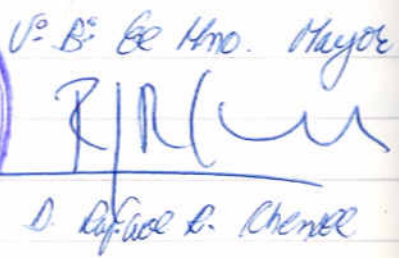 Vº Bº El Hno. Mayor
D. Rafael R. Chenel